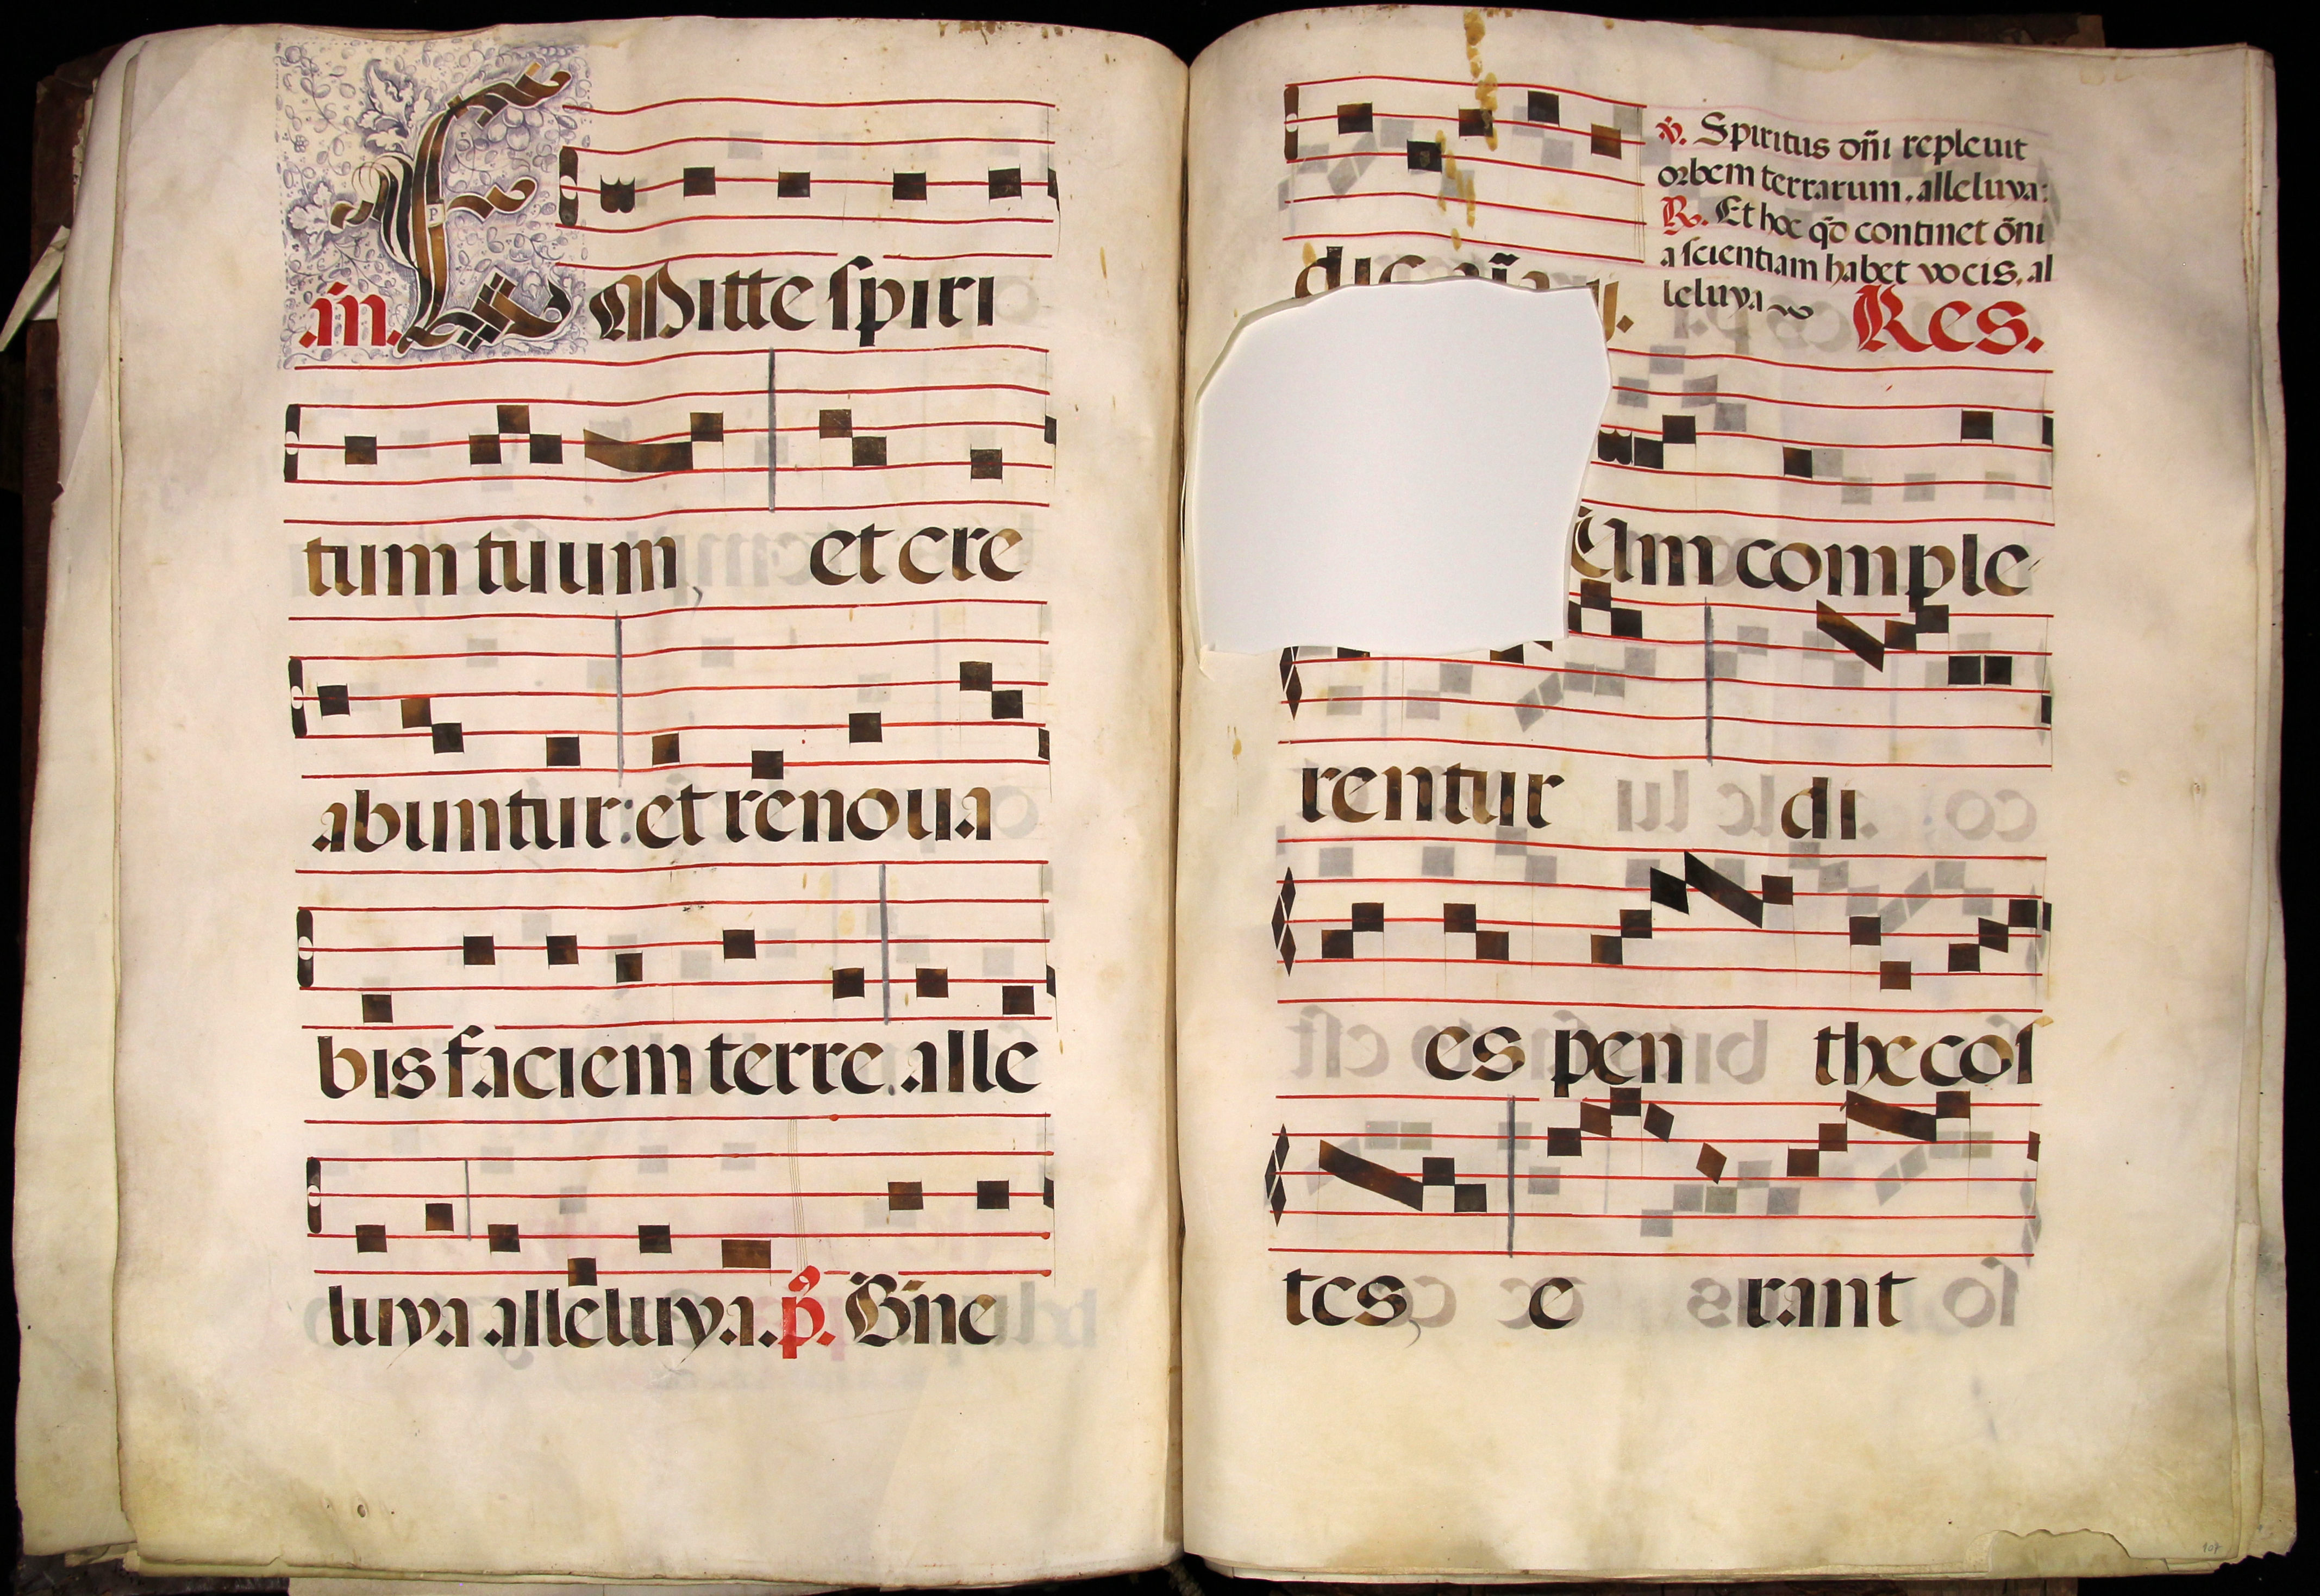 añ. EMitte spiri
tum tuum, et cre
abuntur: et renoua
bis faciem terre. alle
luya alleluya. p̄. Bñe
℣. Spiritus dñi repleuit
orbem terrarum. alleluya:
℟. Et hoc qđ continet õni
a scientiam habet vocis. al
leluya
Res.
um comple-
rentur di
es pen thecos
tes, e rant
107